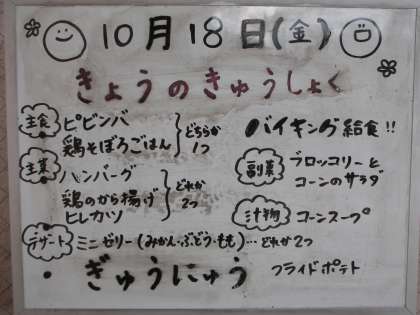 10月18日(金)
きょうのきゅうしょく
主食 ピビンバ
鶏そぼろごはん
どちらか
1つ
バイキング給食!!
主菜 ハンバーグ
鶏のから揚げ
ヒレカツ
どれか
2つ
副菜 ブロッコリーと
コーンのサラダ
汁物 コーンスープ
デザート ミニゼリー(みかん・ぶどう・もも)…どれか2つ
ぎゅうにゅう
フライドポテト